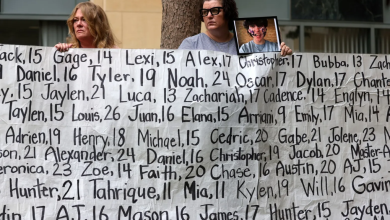 ack, 15 Gage, 14 Lexi, 15 Alex, 17 Christopher, 17 Bubba, 13 Zach
9 Daniel, 16 Tyler, 19 Noah, 24 Oscar, 17 Dylan, 17
Jaylen, 21 Luca, 13 Zachariah, 17 Cadence, 14 Englyn, 19
Taylen, 15 Louis, 26 Juan, 16 Elana, 15 Arnan, 9 Emily, 17 Mia, 14
Adrien, 19 Henry, 18 Michael, 15 Cedric, 20 Gabe, 21 Jolene, 23
son, 21 Alexander, 24 Daniel, 16 Christopher, 19 Jacob, 20
eronica, 23 Zoe, 14 Faith, 20 Chase, 16 Austin, 20 AJ, 15
Hunter, 21 Tahrique, 11 Mia, 11 Kylen, 19 Will, 16 Gavi
tin, A.J., 16 Mason, 16 James, 17 Hunter, Jaysen